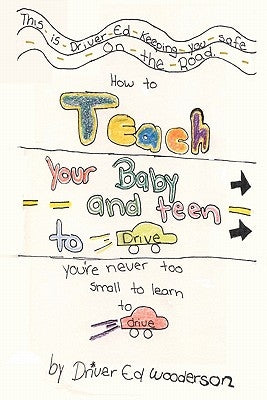 This is Driver Ed Keeping you safe
On the Road
How to
Teach
your Baby
and teen
to Drive
you're never too
small to learn
to
drive
by Driver Ed Wooderson